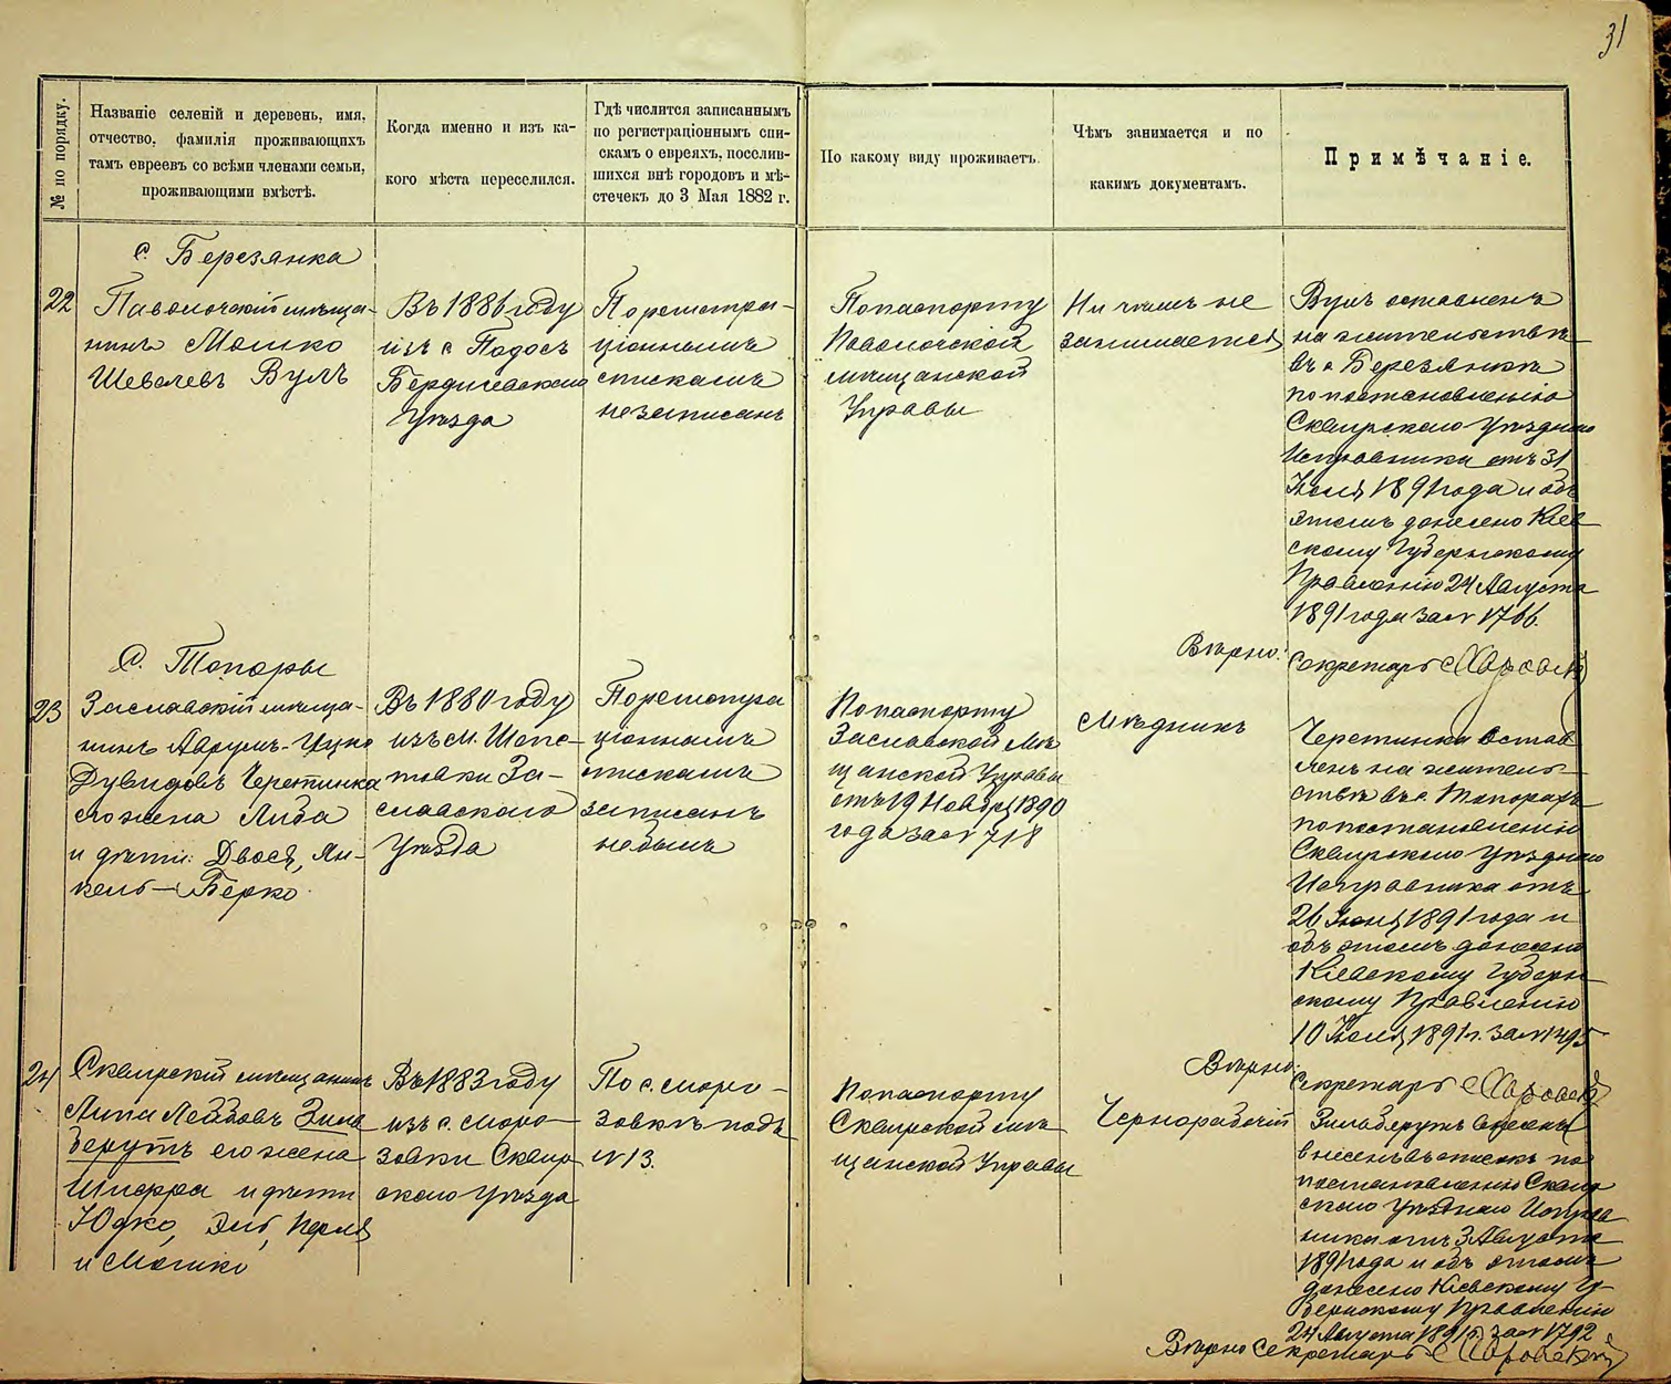 31
№ по порядку.
Названіе селеній и деревень, имя,
отчество, фамилія проживающихъ
тамъ евреевъ со всѣми членами семьи,
проживающими вмѣстѣ.
Когда именно и изъ ка-
кого мѣста переселился.
Гдѣ числится записаннымъ
по регистраціоннымъ спи-
скамъ о евреяхъ, поселив-
шихся внѣ городовъ и мѣ-
стечекъ до 3 Мая 1882 г.
По какому виду проживаетъ.
Чѣмъ занимается и по
какимъ документамъ.
Примѣчаніе.
с. Березянка
22
Паволочскій мѣща-
нинъ Мошко
Шевелевъ Вулъ
Въ 1886 году
изъ с. Подосъ
Бердичевскаго
Уѣзда
По регистра-
ціоннымъ
спискамъ
не записанъ
По паспорту
Паволочской
мѣщанской
Управы
Ни чѣмъ не
занимается
Вулъ оставленъ
на жительствѣ
въ с. Березянкѣ
по постановленію
Сквирскаго Уѣзднаго
Исправника отъ 31
Іюля 1891 года и объ
этомъ донесено Кіев-
скому Губернскому
Правленію 24 Августа
1891 года за № 1766.
Вѣрно:
Секретарь
С. Топоры
23
Заславскій мѣща-
нинъ Аврумъ-Ицко
Дувидовъ Черетинка
его жена Либа
и дѣти: Двося, Ян-
кель-Берко.
Въ 1880 году
изъ м. Шепе-
товки За-
славскаго
Уѣзда
По регистра
ціоннымъ
спискамъ
записанъ
не былъ
По паспорту
Заславской Мѣ
щанской Управы
отъ 19 Ноября 1890
года за № 718
Мѣдникъ
Черетинка Остав
ленъ на житель-
ствѣ въ с. Топорахъ
по постановленію
Сквирскаго Уѣзднаго
Исправника отъ
26 Іюня 1891 года и
объ этомъ донесено
Кіевскому Губерн-
скому Правленію
10 Іюля 1891 г. за № 1495
Вѣрно:
Секретарь
24
Сквирскій мѣщанинъ
Липа Лейбовъ Зиль
берутъ его жена
Шифра и дѣти
Юдко, Эль, Перля
и Мошко
Въ 1883 году
изъ с. Моро-
зовки Сквир
скаго Уѣзда
По с. Моро-
зовкѣ подъ
№ 13.
По паспорту
Сквирской мѣ
щанской Управы
Чернорабочій
Зильберутъ
внесенъ въ списокъ по
постановленію Сквир
скаго Уѣзднаго Исправ
ника отъ 3 Августа
1891 года и объ этомъ
донесено Кіевскому Гу-
бернскому Правленію
24 Августа 1891 г. за № 1792
Вѣрно Секретарь